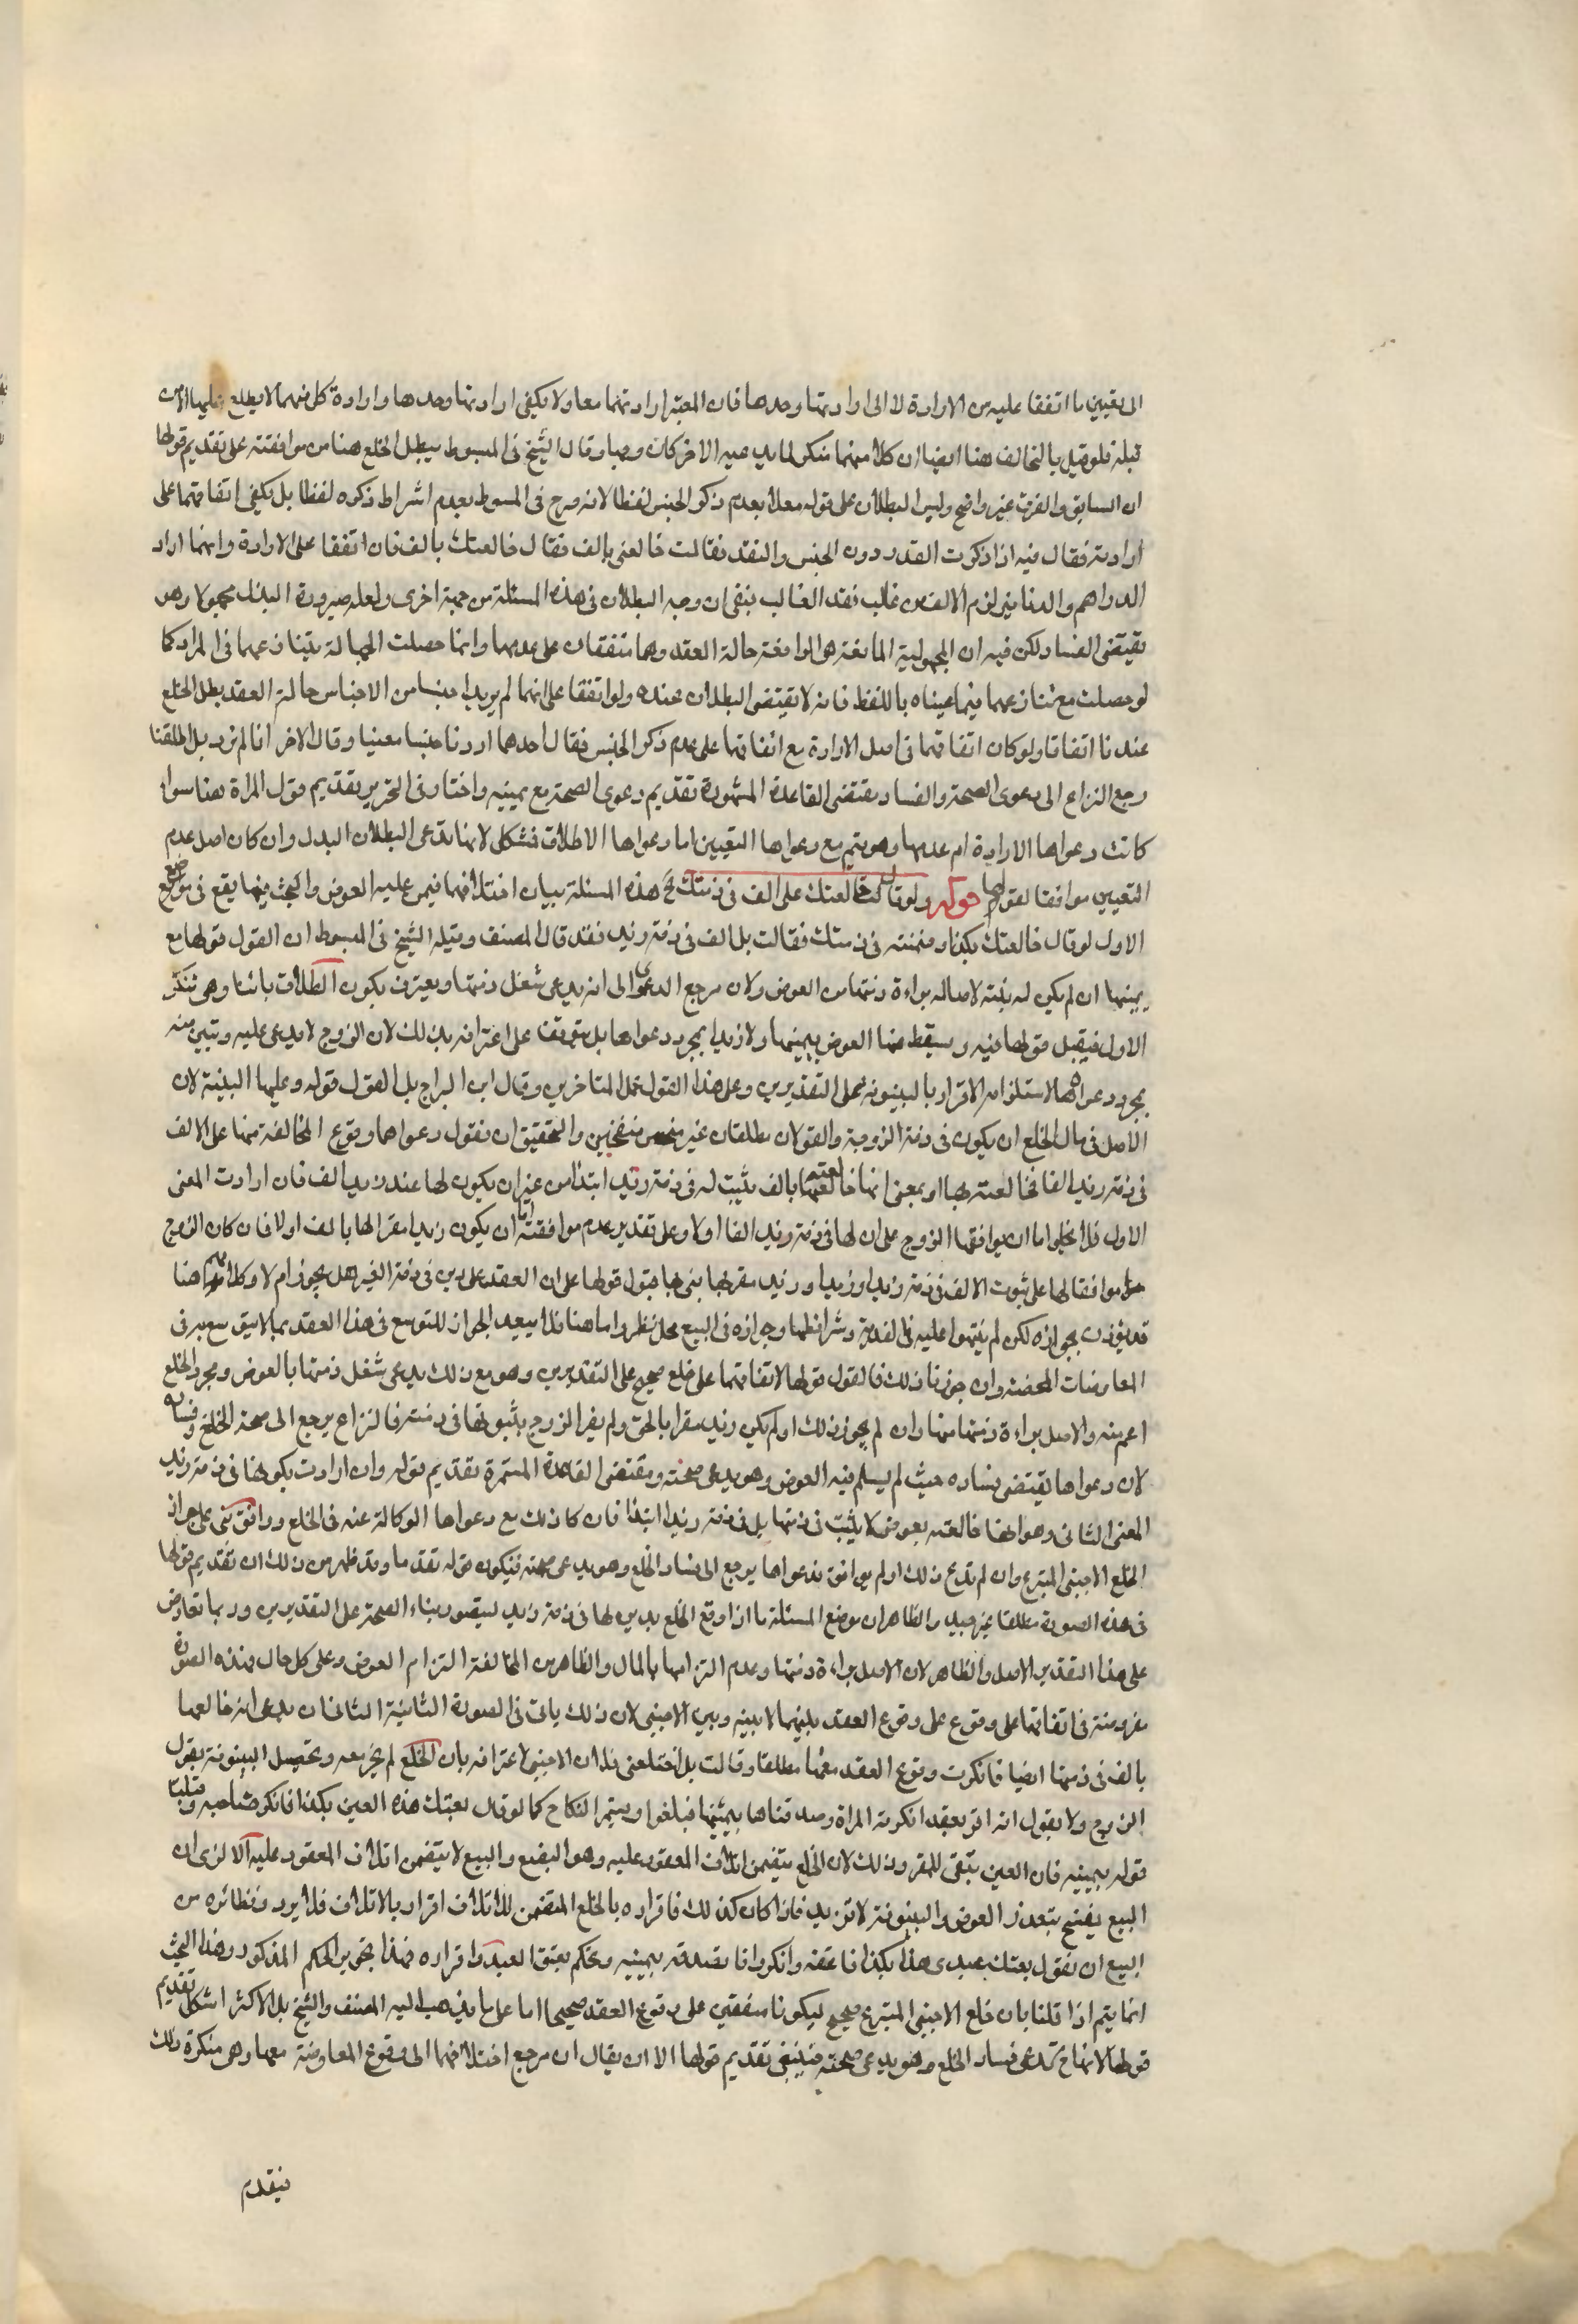 الى تعيين ما اتفقا عليه من الارادة لا الى ارادتها وحدها فان المعتبر ارادتهما معا ولا يكفى ارادتها وحدها وارادة كل منهما لا يطلع عليها الا من
قبله فلو قيل بالتحالف هنا ايضا ان كلا منهما منكر لما يدعيه الاخر كان وجها وقال الشيخ فى المبسوط يبطل الخلع هنا مع موافقته على تقديم قولها
ان السابق والفرق غير واضح وليس البطلان على قوله معللا بعدم ذكر الجنس لفظا لانه صرح فى المبسوط بعدم اشتراط ذكره لفظا بل يكفى اتفاقهما على
ارادته فقال فيه اذا ذكرت القدر دون الجنس والنقد فقالت خالعنى بالف فقال خالعتك بالف فان اتفقا على الارادة وانهما اراد
الدراهم والدنانير لزم الالف من غالب نقد الغالب بنفى ان وجه البطلان فى هذه المسئلة من جهة اخرى ولعله صيرورة البذل مجهولا وهو
يقتضى الفساد لكن فيه ان المجهولية المانعة هى الواقعة حالة العقد وهما متفقان على عدمها وانما حصلت الجهالة بتنازعهما فى المراد كما
لو حصلت مع تنازعهما فيما عيناه باللفظ فانه لا يقتضى البطلان عنده ولو اتفقا على انهما لم يريدا جنسا من الاجناس حالة العقد بطل الخلع
عندنا اتفاقا ولو كان اتفاقهما فى اصل الارادة مع اتفاقهما على عدم ذكر الجنس فقال احدهما اردنا جنسا معينا وقال الاخر انا لم نرد بل اطلقنا
رجع النزاع الى دعوى الصحة والفساد ومقتضى القاعدة المشهورة تقديم دعوى الصحة مع يمينه واختار فى التحرير تقديم قول المراة هنا سواء
كانت دعواها الارادة ام عدمها وهو يتم مع دعواها التعيين اما دعواها الاطلاق فمشكل لانها تدعى البطلان البدل وان كان اصل عدم
التعيين موافقا لقولها قوله ولو قال خالعتك على الف فى ذمتك الخ هذه المسئلة بيان اختلافهما فيمن عليه العوض والبحث فيها يقع فى مواضع
الاول لو قال خالعتك بكذا وضمنته فى ذمتك فقالت بل الف فى ذمة زيد فقد قال المصنف وقبله الشيخ فى المبسوط ان القول قولها مع
يمينها ان لم يكن له بينة لاصالة براءة ذمتها من العوض ولان مرجع الدعوى الى انه يدعى شغل ذمتها ويعترف بكون الطلاق بائنا وهى تنكر
الاول فيقبل قولها فيه ويسقط عنها العوض بيمينها ولا زيدا بمجرد دعواها بل يتوقف على اعترافه بذلك لان الزوج لا يدعى عليه وتبين منه
بمجرد دعواه لاستلزامه الاقرار بالبينونة على التقديرين وعلى هذا القول عمل المتاخرين وقال ابن البراج بل القول قوله وعليها البينة لان
الاصل فى مال الخلع ان يكون فى ذمة الزوجة والقولان مطلقان غير منقحين والتحقيق ان نقول دعواها وقوع المخالعة منها على الالف
فى ذمة زيد الفا فخالعته بها او بمعنى انها خالعته بالف يثبت له فى ذمة زيد ابتداء من غير ان يكون لها عند زيد الف فان ارادت المعنى
الاول فلا يخلو اما ان يوافقها الزوج على ان لها فى ذمة زيد الفا او لا وعلى تقدير عدم موافقته اما ان يكون زيد مقرا لها بالف او لا فان كان الزوج
موافقا لها على ثبوت الالف فى ذمة زيد او زيدا وزيد مقر لها بنى قبول قولها على ان العقد على دين فى ذمة الغير هل يجوز ام لا وكلامهم هنا
قد يؤذن بجوازه لكن لم ينبهوا عليه فى الفدية وشرائطها وجوازه فى البيع محل نظر واما هنا فلا يبعد الجواز للتوسع فى هذا العقد بما لا يتوسع به فى
المعاوضات المحضة وان جوزنا ذلك فالقول قولها لاتفاقهما على خلع صحيح على التقديرين وهو مع ذلك يدعى شغل ذمتها بالعوض ومجرد الخلع
اعم منه والاصل براءة ذمتها منها وان لم يجوز ذلك او لم يكن زيد مقرا بالحق ولم يقر الزوج بثبوتها فى ذمته فالنزاع يرجع الى صحة الخلع وفساده
لان دعواها يقتضى فساده حيث لم يسلم فيه العوض وهو يدعى صحته ومقتضى القاعدة المستمرة تقديم قوله وان ارادت بكونها فى ذمة زيد
المعنى الثانى وهو انها خالعته بعوض لا يثبت فى ذمتها بل فى ذمة زيد ابتداء فان كان ذلك مع دعواها الوكالة عنه فى الخلع ووافق بنى على جواز
الخلع الاجنبى المتبرع وان لم تدع ذلك او لم يوافق فدعواها يرجع الى فساد الخلع وهو يدعى صحته فيكون قوله تقدما وقد ظهر من ذلك ان تقديم قولها
فى هذه الصورة مطلقا غير جيد والظاهر ان موضع المسئلة ما اذا وقع الخلع بدين لها فى ذمة زيد ليتصور بناء الصحة على التقديرين وربما تعارض
على هذا التقدير الاصل والظاهر لان الاصل براءة ذمتها وعدم التزامها بالمال والظاهر من المخالعة التزام العوض وعلى كل حال فهذه الصورة
مفروضة فى اتفاقهما على وقوع العقد بينهما لا بينه وبين الاجنبى لان ذلك ياتى فى الصورة الثانية الثانى ان يدعى انه خالعها
بالف فى ذمتها ايضا فانكرت وقوع العقد معها مطلقا وقالت بل اختلعنى فلان الاجنبى لاعترافه بان الخلع لم يجر معه وتحصل البينونة بقول
الزوج ولا يقول انه اقر بعقد انكرته المراة وصدقناها بيمينها فيلغوا ويستمر النكاح كما لو قال بعتك هذه العين بكذا فانكر صاحبه وقبلنا
قوله بيمينه فان العين تبقى للمقر وذلك لان الخلع يتضمن اتلاف المعقود عليه وهو البضع والبيع لا يتضمن اتلاف المعقود عليه الا ترى ان
البيع يفسخ بتعذر العوض والبينونة لا ترتد فاذا كان كذلك فاقراره بالخلع المتضمن للاتلاف اقرار بالاتلاف فلا يرد ونظائره من
البيع ان نقول بعتك عبدى هذا بكذا فاعتقه وانكر فانا نصدقه بيمينه ونحكم بعتق العبد باقراره فهذا تحرير الحكم المذكور وهذا البحث
انما يتم اذا قلنا بان خلع الاجنبى المتبرع صحيح ليكونا متفقين على وقوع العقد صحيحا اما على ما يذهب اليه المصنف والشيخ بل الاكثر اشكل تقديم
قولها لانها ح تدعى فساد الخلع وهو يدعى صحته فينبغى تقديم قولها الا ان يقال ان مرجع اختلافهما الى وقوع المعاوضة معها وهى منكرة ذلك
فيقدم